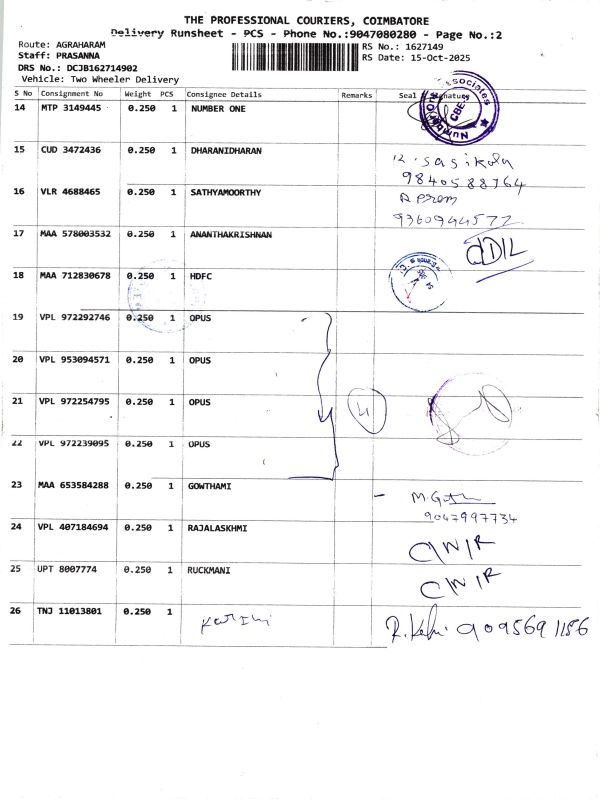 THE PROFESSIONAL COURIERS, COIMBATORE
Delivery Runsheet - PCS - Phone No.:9047080280 - Page No.:2
Route: AGRAHARAM
Staff: PRASANNA
DRS No.: DCJB162714902
Vehicle: Two Wheeler Delivery
RS No.: 1627149
RS Date: 15-Oct-2025
S No Consignment No Weight PCS Consignee Details Remarks Seal Signature
14 MTP 3149445 0.250 1 NUMBER ONE
Number One Associates CBE
15 CUD 3472436 0.250 1 DHARANIDHARAN
R. Sasikala
9840588764
16 VLR 4688465 0.250 1 SATHYAMOORTHY
A Prem
9360944577
17 MAA 578003532 0.250 1 ANANTHAKRISHNAN
18 MAA 712830678 0.250 1 HDFC
19 VPL 972292746 0.250 1 OPUS
20 VPL 953094571 0.250 1 OPUS
21 VPL 972254795 0.250 1 OPUS 4
22 VPL 972239095 0.250 1 OPUS
23 MAA 653584288 0.250 1 GOWTHAMI
9047997734
24 VPL 407184694 0.250 1 RAJALASKHMI
25 UPT 8007774 0.250 1 RUCKMANI
26 TNJ 11013801 0.250 1
9095691156